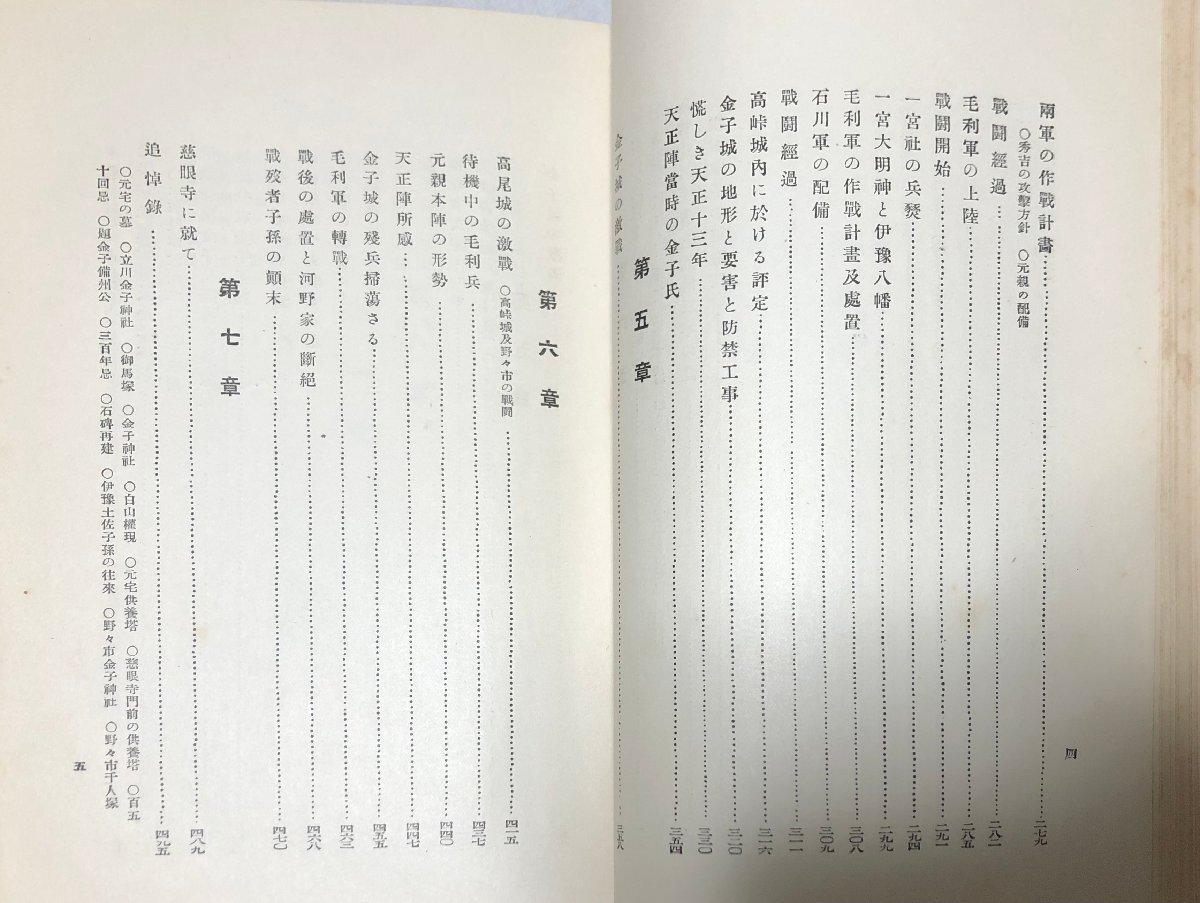 兩軍の作戰計畫……二七九
○秀吉の攻擊方針 ○元親の配備
戰鬪經過……二八二
毛利軍の上陸……二八五
戰鬪開始……二九一
一宮社の兵燹……二九四
一宮大明神と伊豫八幡……二九九
毛利軍の作戰計畫及處置……三〇八
石川軍の配備……三〇九
戰鬪經過……三一一
高峠城內に於ける評定……三一六
金子城の地形と要害と防禁工事……三二〇
慌しき天正十三年……三三〇
天正陣當時の金子氏……三五四
第五章
金子城の激戰……三五八
四
第六章
高尾城の激戰……四一五
○高峠城及野々市の戰鬪
待機中の毛利兵……四三七
元親本陣の形勢……四四〇
天正陣所感……四四七
金子城の殘兵掃蕩さる……四五五
毛利軍の轉戰……四六三
戰後の處置と河野家の斷絕……四六八
戰歿者子孫の顚末……四七〇
第七章
慈眼寺に就て……四八九
追悼錄……四九五
○元宅の墓 ○立川金子神社 ○御馬塚 ○金子神社 ○白山權現 ○元宅供養塔 ○慈眼寺門前の供養塔 ○百五
十回忌 ○題金子備州公 ○三百年忌 ○石碑再建 ○伊豫土佐子孫の往來 ○野々市金子神社 ○野々市千人塚
五